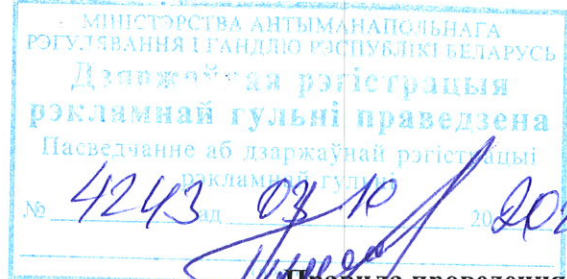 МІНІСТЭРСТВА АНТЫМАНАПОЛЬНАГА
РЭГУЛЯВАННЯ І ГАНДЛЮ РЭСПУБЛІКІ БЕЛАРУСЬ
Дзяржаўная рэгістрацыя
рэкламнай гульні праведзена
Пасведчанне аб дзяржаўнай рэгістрацыі
рэкламнай гульні
№ 4243 ад 03 10 20
Правила проведения